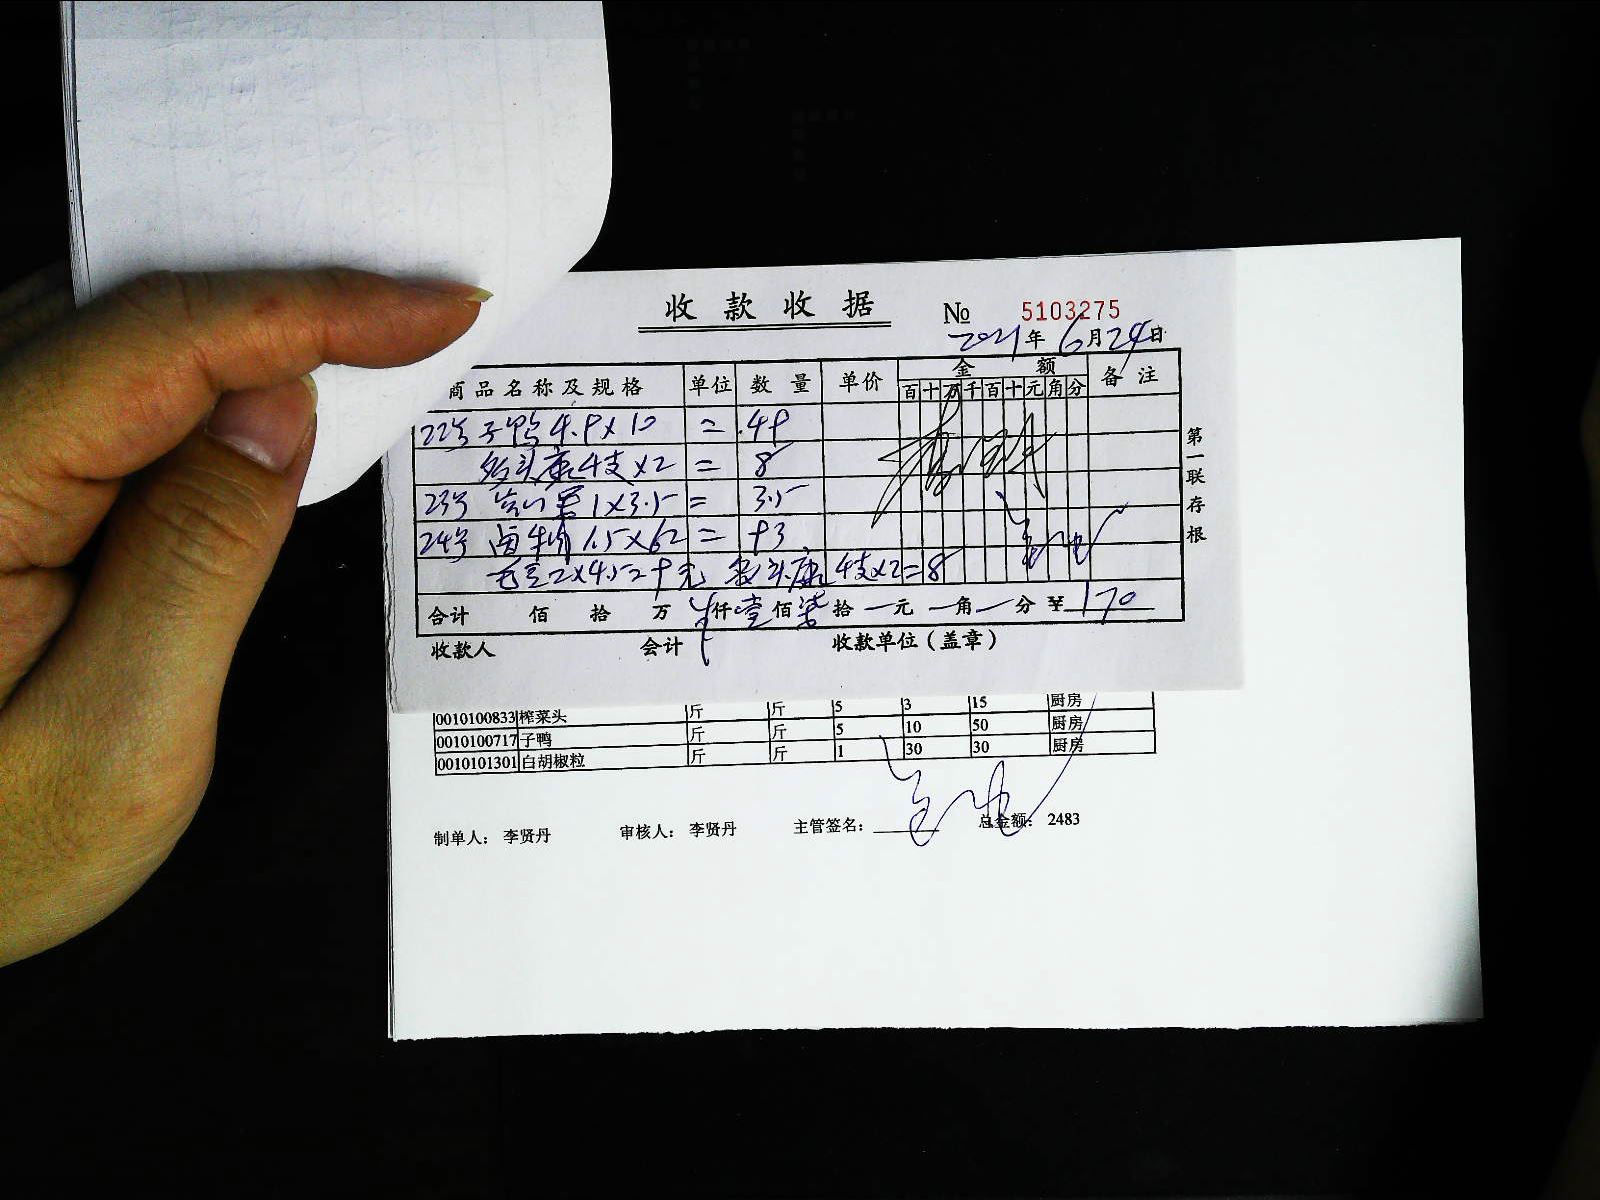 收款收据
№ 5103275
2021年6月24日
商品名称及规格 单位 数量 单价 金额 备注
百十万千百十元角分
22号子鸭4.9×10 = 49
4支×2 = 8
23号 1×3.5 = 3.5
24号 卤牛 1.5×62 = 93
毛豆2×4.5=9元 4支×2=8
合计 佰 拾 万 仟壹佰柒拾一元一角一分 ¥170
收款人 会计 收款单位(盖章)
第一联存根
0010100833 榨菜头 斤 斤 5 3 15 厨房
0010100717 子鸭 斤 斤 5 10 50 厨房
0010101301 白胡椒粒 斤 斤 1 30 30 厨房
制单人: 李贤丹 审核人: 李贤丹 主管签名: 总金额: 2483